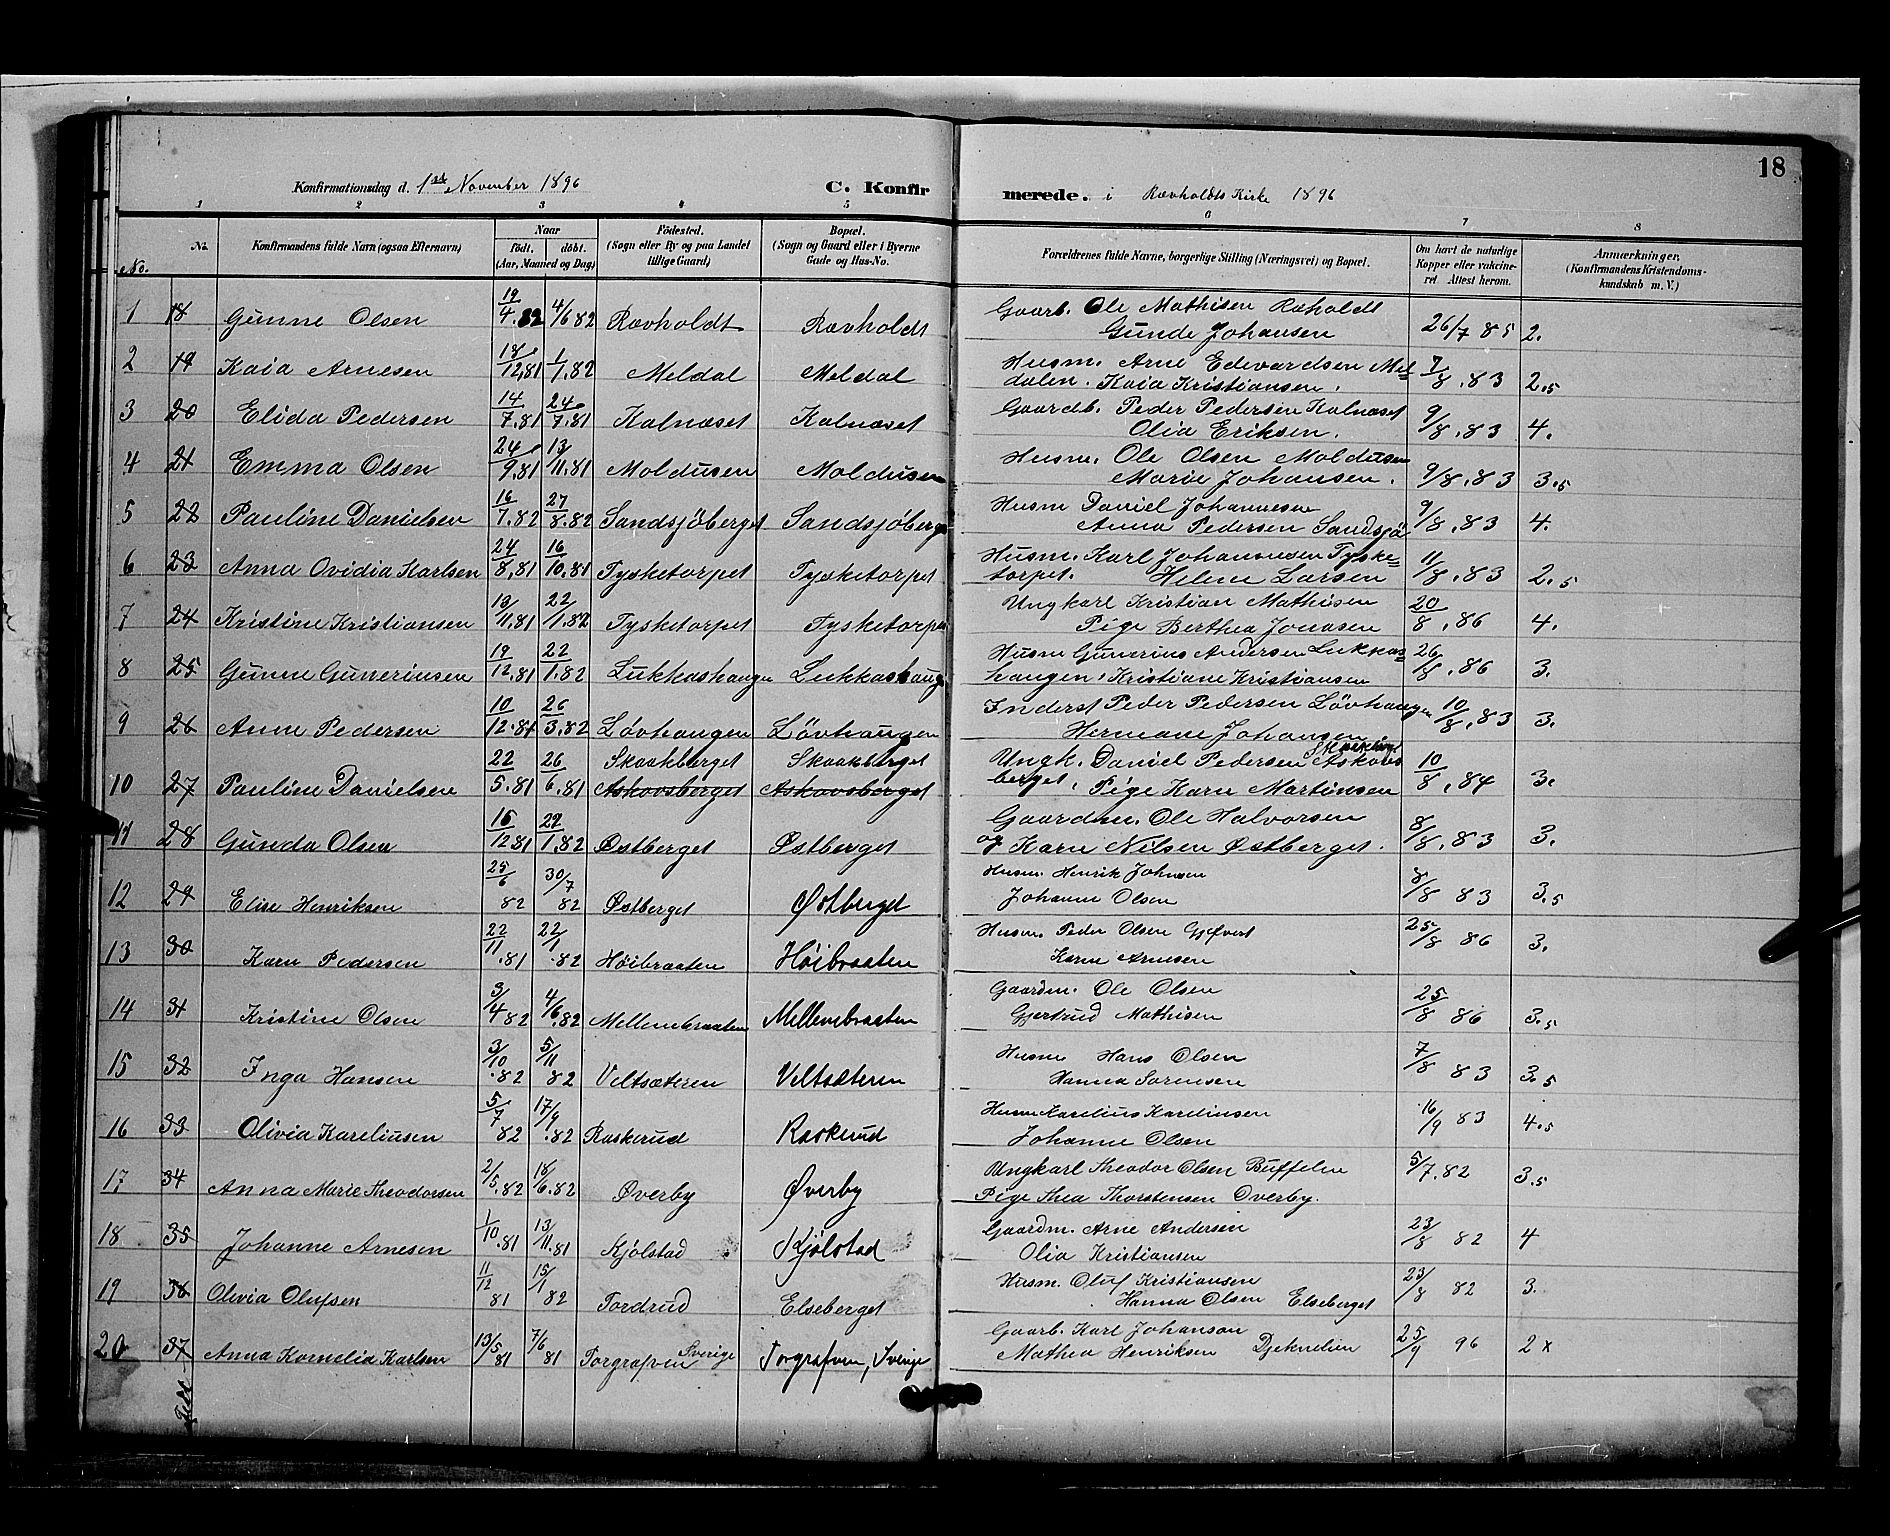 18
Konfirmationsdag d. 1ste November 1896 C. Konfirmerede. i Rævholdts Kirke 1896
1 2 3 4 5 6 7 8
No. No. Konfirmandens fulde Navn (ogsaa Efternavn) Naar født. døbt. (Aar, Maaned og Dag) Fødested. (Sogn eller By og paa Landet tillige Gaard) Bopæl. (Sogn og Gaard eller i Byerne Gade og Hus-No. Forældrenes fulde Navne, borgerlige Stilling (Næringsvei) og Bopæl. Om havt de naturlige Kopper eller vakcineret Attest herom. Anmærkninger. (Konfirmandens Kristendomskundskab m. V.)
1 18 Gunne Olsen 19/4.82 4/6 82 Rævholdt Rævholdt Gaarb. Ole Mathisen Ræholdt 26/7 85 2.
Gunde Johansen
2 19 Kaia Arnesen 18/12.81 1/1.82 Meldal Meldal Husm. Arne Edevardsen Mel= 7/8.83 2.5
dalen. Kaia Kristiansen.
3 20 Elida Pedersen 14/7.81 24/7.81 Kalnæset Kalnæset Gaardb. Peder Pedersen Kalnæset 9/8.83 4.
Olia Eriksen.
4 21 Emma Olsen 24/9.81 13/11.81 Moldusen Moldusen Husm. Ole Olsen Moldusen 9/8.83 3.5
Marie Johansen.
5 22 Pauline Danielsen 16/7.82 27/8.82 Sandsjöberget Sandsjöberge Husm Daniel Johannesen 9/8.83 4.
Anna Pedersen Sandsjö
6 23 Anna Ovidia Karlsen 24/8.81 16/10.81 Tysketorpet Tysketorpet Husm. Karl Johannsen Tyske= 11/8.83 2.5
torpet. Helene Larsen
7 24 Kristine Kristiansen 13/11.81 22/1.82 Tysketorpet Tysketorpe Ungkarl Kristian Mathisen 20/8.86 4.
Pige Berthea Jonasen
8 25 Gunne Gunerinsen 19/12.81 22/1.82 Lukkashaugen Lukkashaug Husm Gunerius Andersen Lukkas= 26/8.86 3.
haugen, Kristiane Kristiansen
9 26 Anne Pedersen 10/12.81 26/3.82 Lövhaugen Lövhaugen Inderst Peder Pedersen Lövhaugen 10/8.83 3.
Hermane Johansen
10 27 Pauline Danielsen 22/5.81 26/6.81 Skaakberget Askovsberget Skaakberget Askovsberget Ungk. Daniel Pedersen Askovs 10/8.84 3.
berget, Pige Karn Martinsen
11 28 Gunda Olsen 15/12.81 22/1.82 Østberget Østberget Gaardm. Ole Halvorsen 8/8.83 3.
og Karn Nilsen Østberget.
12 29 Elise Henriksen 25/6 82 30/7 82 Østberget Østberget Husm. Henrik Johnsen 8/8 83 3.5
Johanne Olsen
13 30 Karn Pedersen 22/11.81 22/1.82 Høibraaten Høibraaten Husm. Peder Olsen 25/8 86 3.
Karne Arnesen
14 31 Kristine Olsen 3/4 82 4/6.82 Mellenebraaten Mellenebraaten Gaardm. Ole Olsen 25/8 86 3.5
Gjertrud Mathisen
15 32 Inga Hansen 3/10.82 5/11 82 Veltsæteren Veltsæteren Husm Hans Olsen 7/8 83 3.5
Hanna Sørensen
16 33 Olivia Kareliusen 5/7 82 17/9.82 Raskerud Raskerud Husm Karelius Karelinsen 16/9 83 4.5
Johanne Olsen
17 34 Anna Marie Theodorsen 2/5.82 18/6.82 Øverby Øverby Ungkarl Theodor Olsen Buffelen 5/7.82 3.5
Pige Thea Thorstensen Overby.
18 35 Johanne Arnesen 1/10.81 13/11.81 Kjölstad Kjölstad Gaardm. Arne Andersen 23/8 82 4
Olia Kristiansen
19 36 Olivia Olufsen 11/12 81 15/1 82 Tordrud Elseberget Husm. Oluf Kristiansen 23/8 82 3.
Hanna Olsen Elseberget
20 37 Anna Kornelia Karlsen 13/5 81 7/6 81 Torgrafven Sverige Torgrafven, Sverige Gaarb. Karl Johanson 25/9 96 2 x
Mathea Henriksen